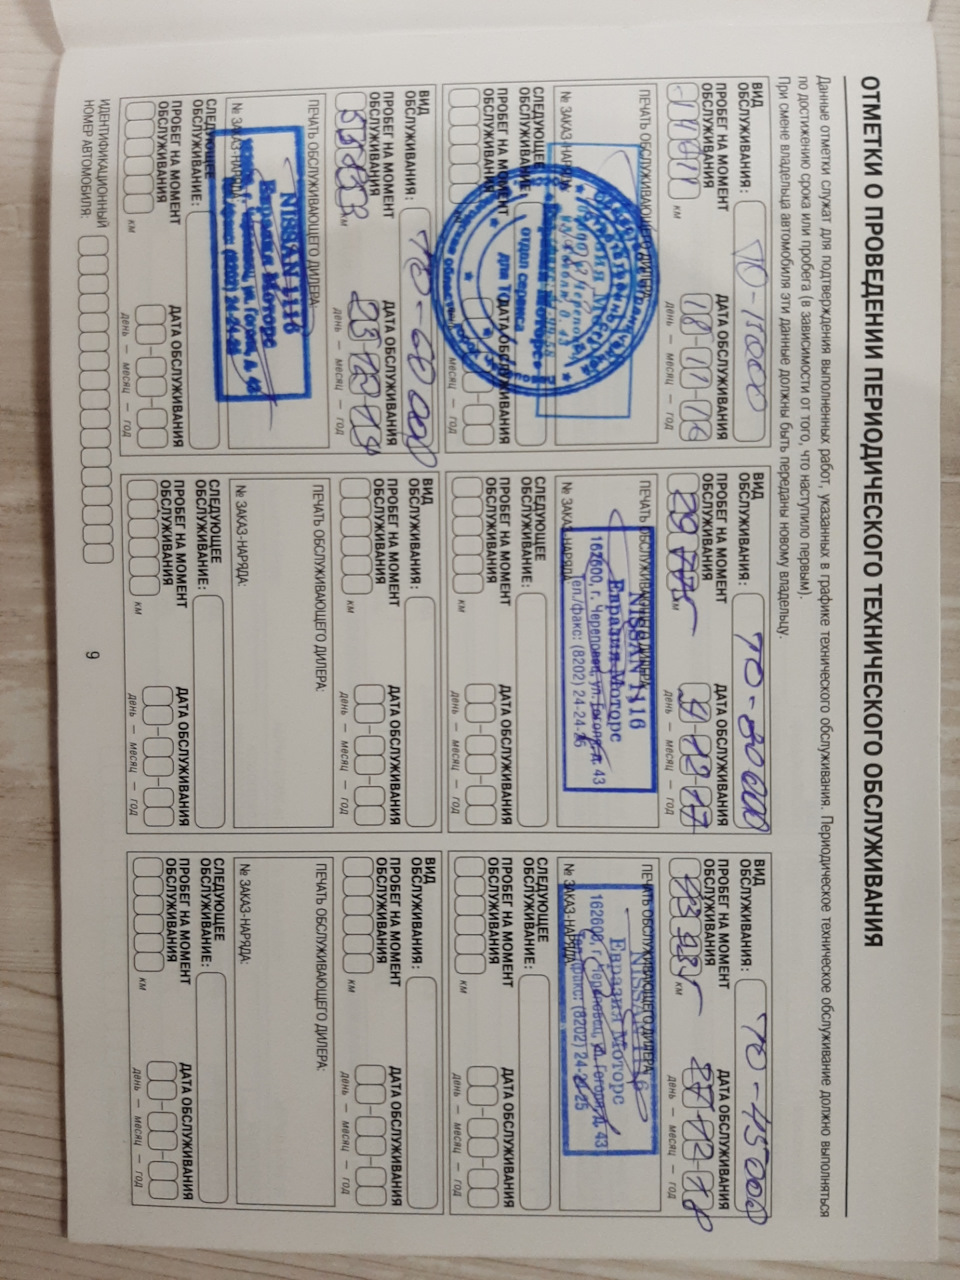 ОТМЕТКИ О ПРОВЕДЕНИИ ПЕРИОДИЧЕСКОГО ТЕХНИЧЕСКОГО ОБСЛУЖИВАНИЯ
Данные отметки служат для подтверждения выполненных работ, указанных в графике технического обслуживания. Периодическое техническое обслуживание должно выполняться
по достижению срока или пробега (в зависимости от того, что наступило первым).
При смене владельца автомобиля эти данные должны быть переданы новому владельцу.
ВИД
ОБСЛУЖИВАНИЯ:
ТО-15000
ПРОБЕГ НА МОМЕНТ
ОБСЛУЖИВАНИЯ
км
ДАТА ОБСЛУЖИВАНИЯ
18-11-16
день — месяц — год
ПЕЧАТЬ ОБСЛУЖИВАЮЩЕГО ДИЛЕРА:
отдел сервиса
для ТО
№ ЗАКАЗ-НАРЯДА:
СЛЕДУЮЩЕЕ
ОБСЛУЖИВАНИЕ:
ПРОБЕГ НА МОМЕНТ
ОБСЛУЖИВАНИЯ
ДАТА ОБСЛУЖИВАНИЯ
день — месяц — год
ВИД
ОБСЛУЖИВАНИЯ:
ТО-30000
ПРОБЕГ НА МОМЕНТ
ОБСЛУЖИВАНИЯ
29775
км
ДАТА ОБСЛУЖИВАНИЯ
24-12-17
день — месяц — год
ПЕЧАТЬ ОБСЛУЖИВАЮЩЕГО ДИЛЕРА:
NISSAN 1116
Евразия Моторс
162600, г. Череповец, ул. Гоголя, д. 43
Тел./факс: (8202) 24-24-25
№ ЗАКАЗ-НАРЯДА
СЛЕДУЮЩЕЕ
ОБСЛУЖИВАНИЕ:
ПРОБЕГ НА МОМЕНТ
ОБСЛУЖИВАНИЯ
км
ДАТА ОБСЛУЖИВАНИЯ
день — месяц — год
ВИД
ОБСЛУЖИВАНИЯ:
ТО-45000
ПРОБЕГ НА МОМЕНТ
ОБСЛУЖИВАНИЯ
43935
км
ДАТА ОБСЛУЖИВАНИЯ
27-12-18
день — месяц — год
ПЕЧАТЬ ОБСЛУЖИВАЮЩЕГО ДИЛЕРА:
NISSAN 1116
Евразия Моторс
162600, г. Череповец, ул. Гоголя, д. 43
Тел./факс: (8202) 24-24-25
№ ЗАКАЗ-НАРЯДА
СЛЕДУЮЩЕЕ
ОБСЛУЖИВАНИЕ:
ПРОБЕГ НА МОМЕНТ
ОБСЛУЖИВАНИЯ
км
ДАТА ОБСЛУЖИВАНИЯ
день — месяц — год
ВИД
ОБСЛУЖИВАНИЯ:
ТО-60000
ПРОБЕГ НА МОМЕНТ
ОБСЛУЖИВАНИЯ
км
ДАТА ОБСЛУЖИВАНИЯ
23 12 19
день — месяц — год
ПЕЧАТЬ ОБСЛУЖИВАЮЩЕГО ДИЛЕРА:
NISSAN 1116
Евразия Моторс
г. Череповец, ул. Гоголя, д. 43
(8202) 24-24-25
№ ЗАКАЗ-НАРЯДА:
СЛЕДУЮЩЕЕ
ОБСЛУЖИВАНИЕ:
ПРОБЕГ НА МОМЕНТ
ОБСЛУЖИВАНИЯ
км
ДАТА ОБСЛУЖИВАНИЯ
день — месяц — год
ВИД
ОБСЛУЖИВАНИЯ:
ПРОБЕГ НА МОМЕНТ
ОБСЛУЖИВАНИЯ
км
ДАТА ОБСЛУЖИВАНИЯ
день — месяц — год
ПЕЧАТЬ ОБСЛУЖИВАЮЩЕГО ДИЛЕРА:
№ ЗАКАЗ-НАРЯДА:
СЛЕДУЮЩЕЕ
ОБСЛУЖИВАНИЕ:
ПРОБЕГ НА МОМЕНТ
ОБСЛУЖИВАНИЯ
км
ДАТА ОБСЛУЖИВАНИЯ
день — месяц — год
ВИД
ОБСЛУЖИВАНИЯ:
ПРОБЕГ НА МОМЕНТ
ОБСЛУЖИВАНИЯ
км
ДАТА ОБСЛУЖИВАНИЯ
день — месяц — год
ПЕЧАТЬ ОБСЛУЖИВАЮЩЕГО ДИЛЕРА:
№ ЗАКАЗ-НАРЯДА:
СЛЕДУЮЩЕЕ
ОБСЛУЖИВАНИЕ:
ПРОБЕГ НА МОМЕНТ
ОБСЛУЖИВАНИЯ
км
ДАТА ОБСЛУЖИВАНИЯ
день — месяц — год
ИДЕНТИФИКАЦИОННЫЙ
НОМЕР АВТОМОБИЛЯ:
9